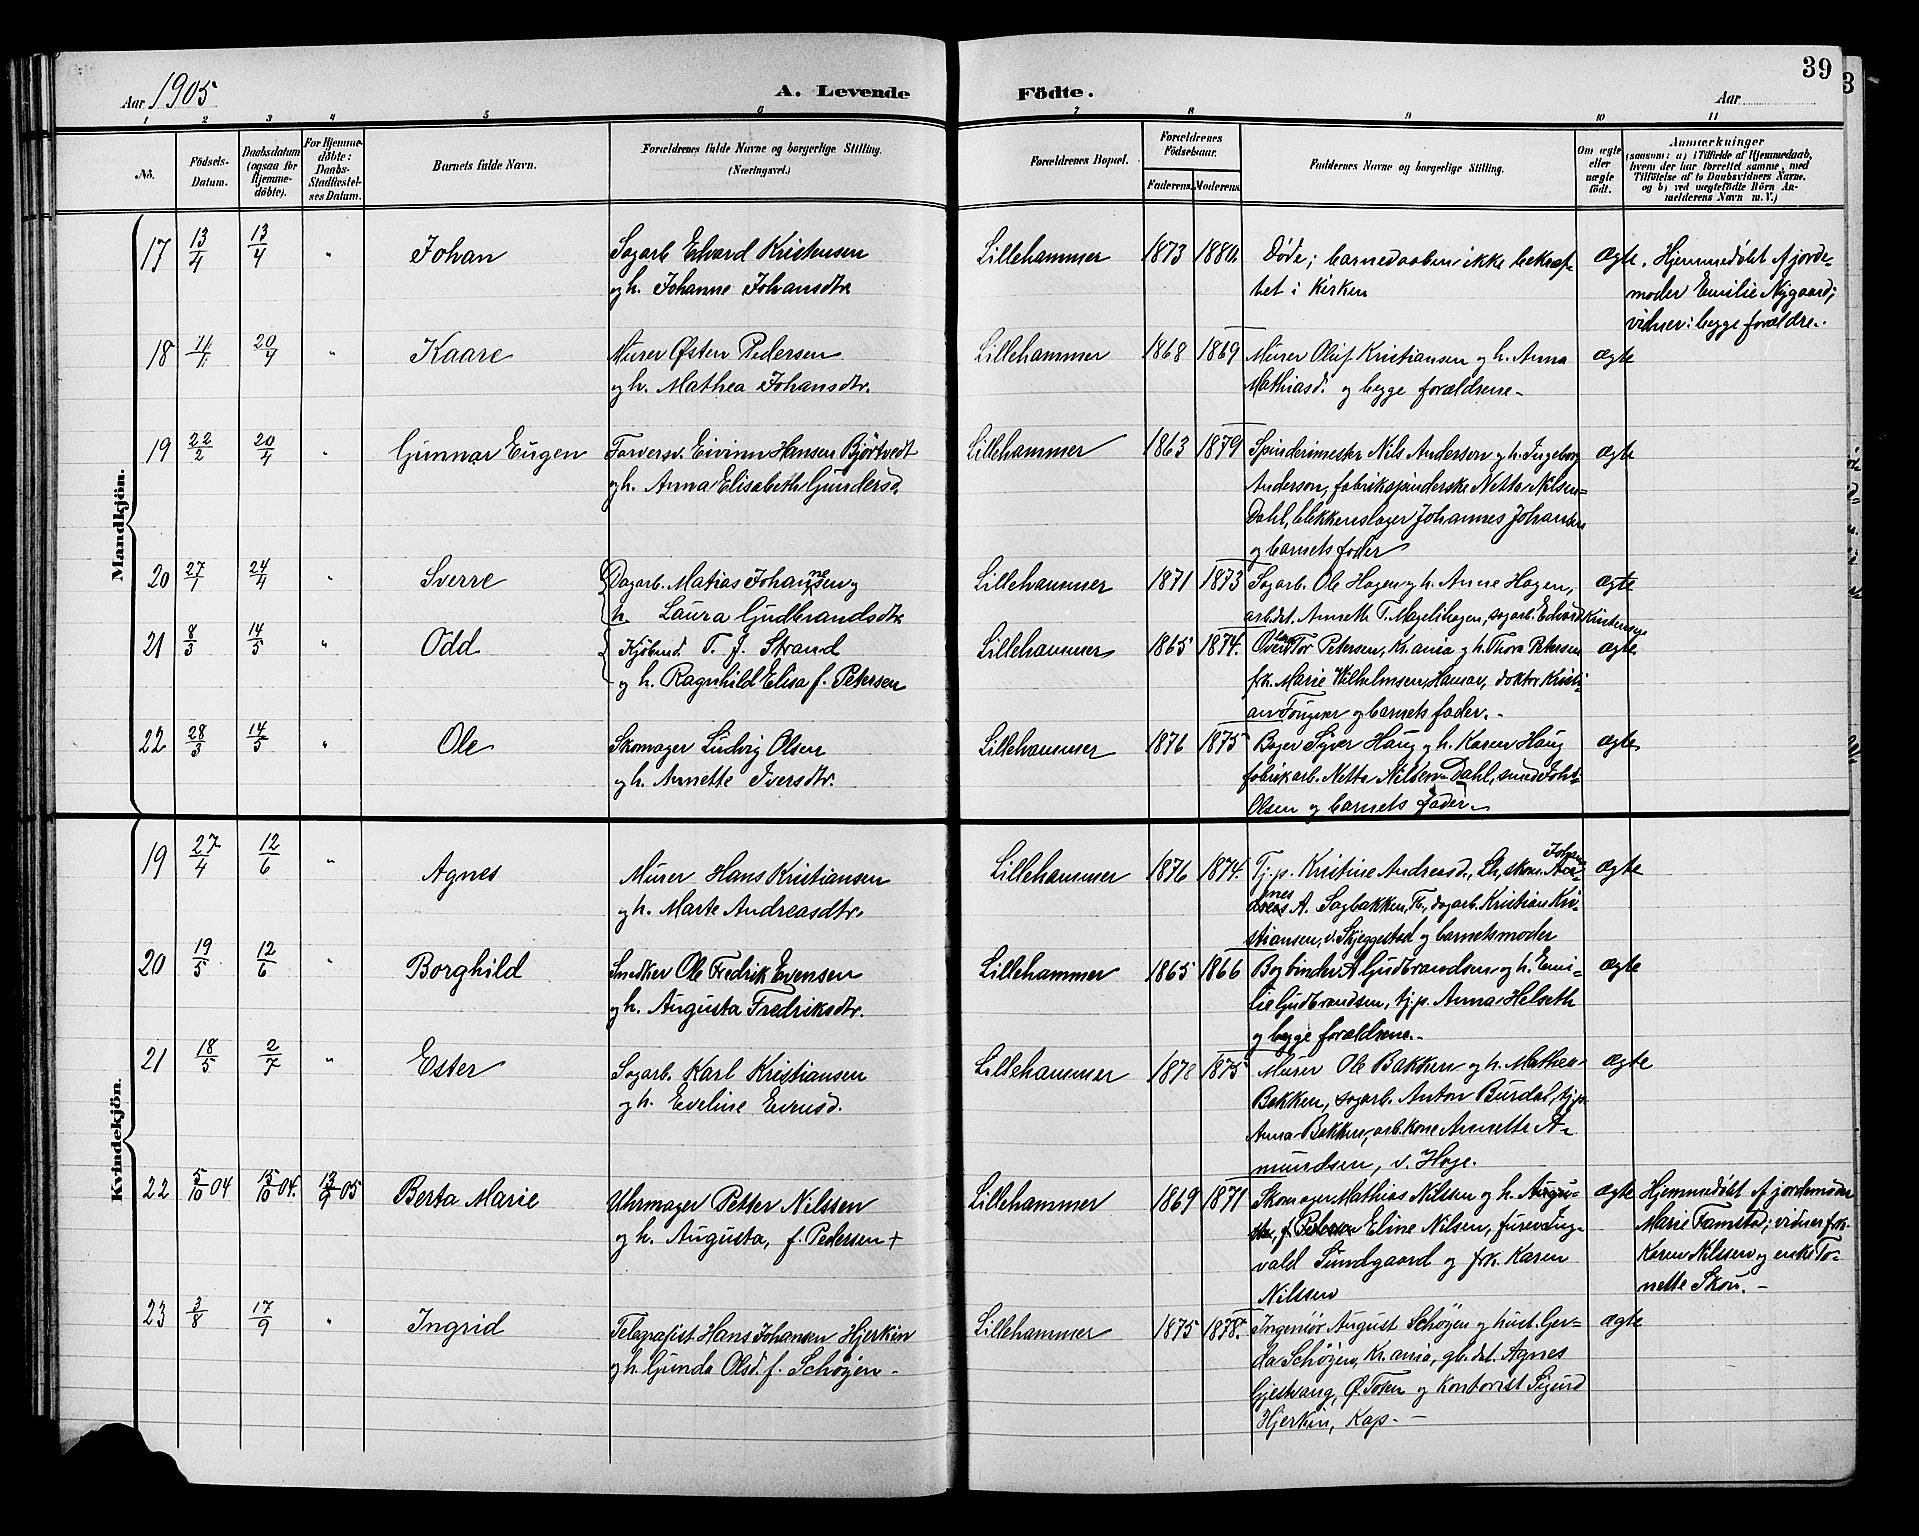 39
Aar 1905
A. Levende
Födte.
Aar
1 2 3 4 5 6 7 8 9 10 11
No.
Födsels-
Datum.
Daabsdatum
(ogsaa for
Hjemme-
döbte).
For Hjemme-
döbte:
Daabs-
Stadfæstel-
ses Datum.
Barnets fulde Navn.
Forældrenes fulde Navne og borgerlige Stilling.
(Næringsvei.)
Forældrenes Bopæl.
Forældrenes
Födselsaar.
Faderens. Moderens.
Faddernes Navne og borgerlige Stilling.
Om ægte
eller
uægte
födt.
Anmærkninger
(saasom: a) i Tilfælde af Hjemmedaab,
hvem der har forrettet samme, med
Tilföielse af to Daabsvidners Navne,
og b) ved uægtefödte Börn An-
melderens Navn m. V.)
Mandkjön.
17 13/4 13/4 " Johan
Sagarb. Edvard Kristensen
og h. Johanne Johansdtr.
Lillehammer 1873 1880.
Døde; barnedaaben ikke bekræf-
tet i kirken
ægte.
Hjemmedøbt af jorde-
moder Emilie Nygaard;
vidner: begge forældre.
18 20/4 " Kaare
Murer Østen Pedersen
og h. Mathea Johansdtr.
Lillehammer 1868 1869
Murer Oluf Kristiansen og h. Anna
Mathiasd. og begge forældrene.
ægte
19 22/2 20/4 " Gunnar Eugen
Farversv. Eivinn Hansen Bjørtvedt
og h. Anna Elisabeth Gundersd.
Lillehammer 1863 1879
Spinderimester Nils Anderson og h. Ingeborg
Anderson, fabrikspinderske Netta Nilsen-
Dahl, blikkenslager Johannes Johansen
og barnets fader
ægte
20 27/1 24/4 " Sverre
Dagarb. Matias Johannesen og
h. Laura Gudbrandsdtr.
Lillehammer 1871 1873
Sagarb. Ole Hagen og h. Anne Hagen,
arb.det. Annette T. Mageli hagen, sagarb. Edvard Kristensen
ægte
21 8/3 14/5 " Odd
Kjøbmd. T. J. Strand
og h. Ragnhild Elisa f. Petersen
Lillehammer 1865 1874.
Tor Petersen, Kr.ania og h. Thora Petersen
frk. Marie Wilhelmsen, Hamar, doktor Kristi-
an Fougner og barnets fader.
ægte
22 28/3 14/5 " Ole
Skomager Ludvig Olsen
og h. Annette Iversdtr.
Lillehammer 1876 1875
Bager Syver Haug og h. Karen Haug
fabrikarb. Netta Nilsen Dahl, smed Johs.
Olsen og barnets fader.
ægte
Kvindekjön.
19 27/4 12/6 " Agnes
Murer Hans Kristiansen
og h. Marte Andreasdtr.
Lillehammer 1876 1874.
Tj.p. Kristine Andreasd., Lh, skom. Johan-
nes A. Sagbakken, Fb., dagarb. Kristian Kri-
stiansen, v. Skjeggestad og barnets moder
ægte
20 19/5 12/6 " Borghild
Snedker Ole Fredrik Evensen
og h. Augusta Fredriksdtr.
Lillehammer 1865 1866
Bogbinder A Gudbrandsen og h. Emi-
lie Gudbrandsen, tj.p. Anna Helseth
og begge forældrene.
ægte
21 18/5 2/7 " Ester
Sagarb. Karl Kristiansen
og h. Eveline Evensd.
Lillehammer 1878 1875
Murer Ole Bakken og h. Mathea
Bakken, sagarb. Anton Burdal, tj.p.
Anna Bakken, arb.kone Annette A-
mundsen, v. Hage.
ægte
22 5/10 04 15/10 04. 13/9 05 Berta Marie
Uhrmager Petter Nilssen
og h. Augusta, f. Pedersen +
Lillehammer 1869 1871
Skomager Mathias Nilsen og h. Augu-
sta, f. Petersen Eline Nilsen, Ing-
vald Sundgaard og frk. Karen
Nilssen
ægte
Hjemmedøbt af jordemoder
Marie Famstad; vidner frk.
Karen Nilssen og enke To-
nette Skou.
23 3/8 17/9 " Ingrid
Telegrafist Hans Johansen Hjerkin
og h. Gunda Olsd. f. Schøyen
Lillehammer 1875 1878.
Ingeniør August Schøyen og hust. Ger-
da Schøyen, Kr.ania, gb.dt. Agnes
Gjestvang, Ø. Toten og kontorist Sigurd
Hjerkin, Kap.
ægte